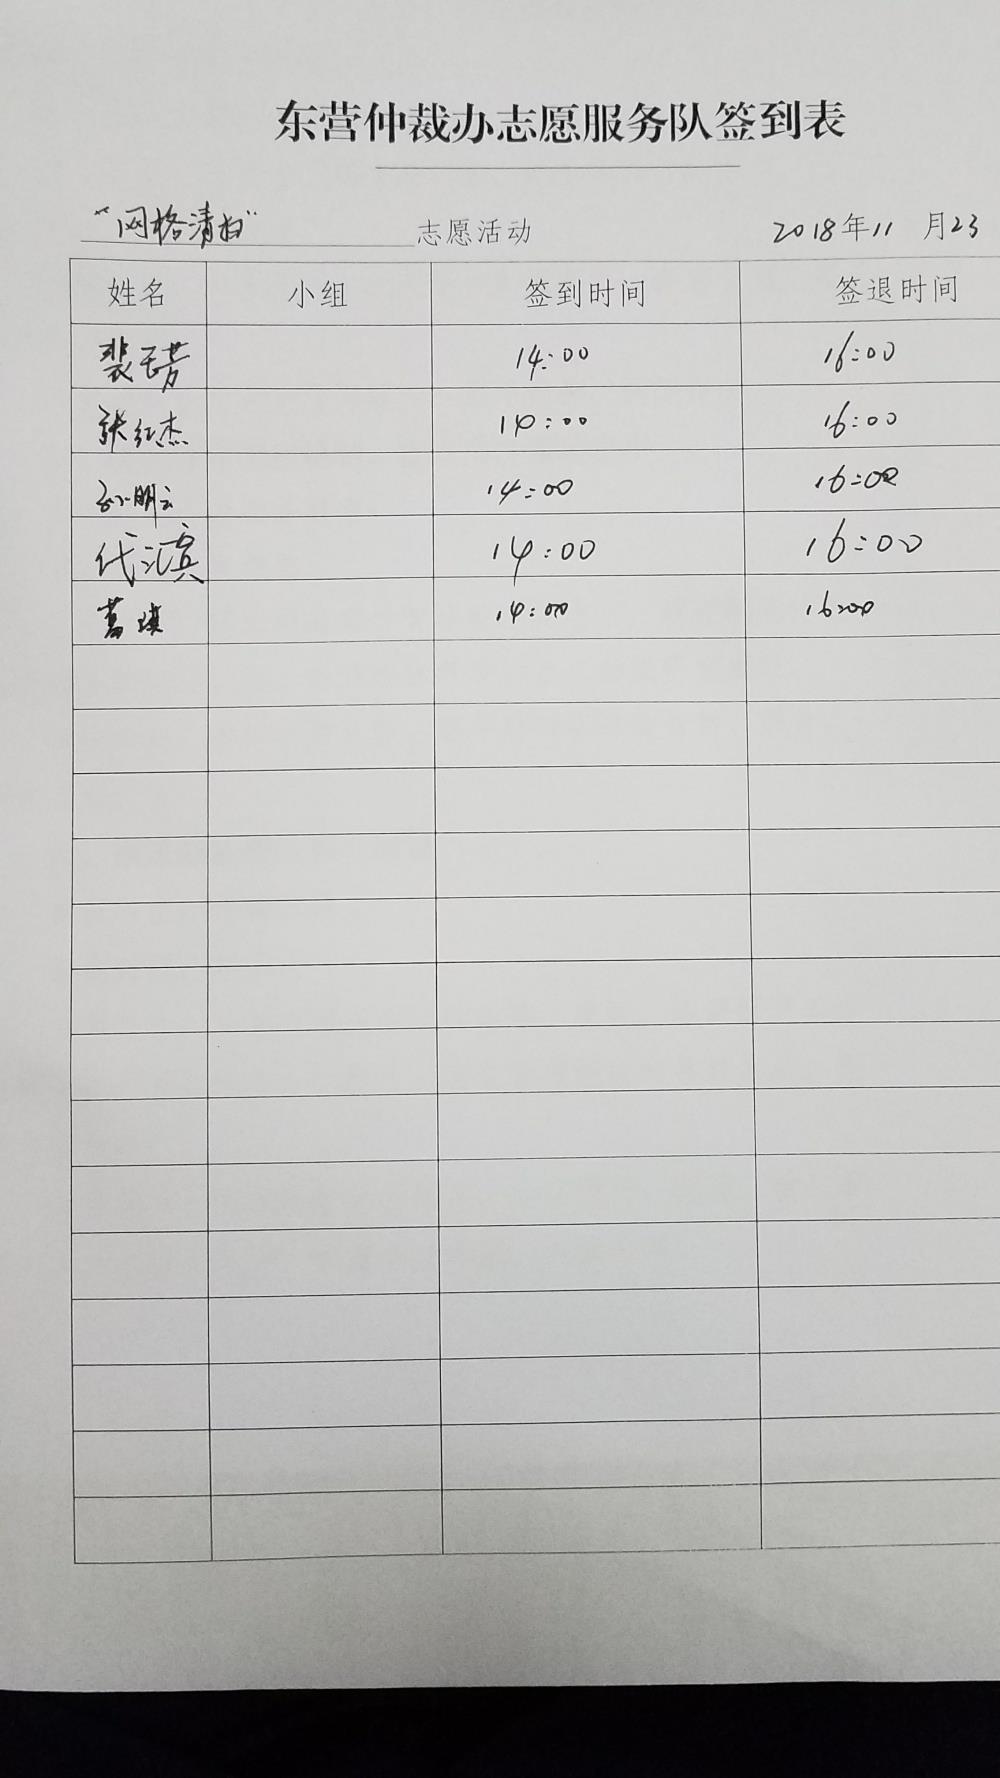 东营仲裁办志愿服务队签到表
“网格清扫” 志愿活动 2018年11 月23
姓名 小组 签到时间 签退时间
裴玉芳 14:00 16:00
张红杰 14:00 16:00
孙明云 14:00 16:00
代滨 14:00 16:00
葛琪 14:00 16:00